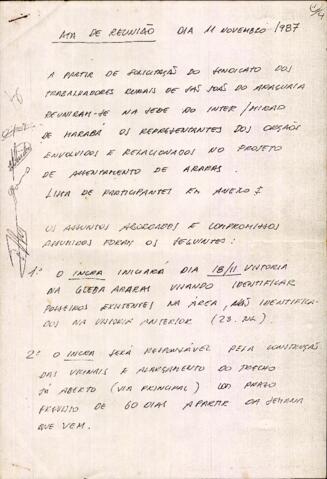 ATA DE REUNIÃO DIA 11 NOVEMBRO/1987
A PARTIR DE SOLICITAÇÃO DO SINDICATO DOS
TRABALHADORES RURAIS DE SÃO JOÃO DO ARAGUAIA
REUNIRAM-SE NA SEDE DO INTER/MIRAD
DE MARABÁ OS REPRESENTANTES DOS ORGÃOS
ENVOLVIDOS E RELACIONADOS NO PROJETO
DE ASSENTAMENTO DE ARARAS.
LISTA DE PARTICIPANTES EM ANEXO I
OS ASSUNTOS ABORDADOS E COMPROMISSOS
ASSUMIDOS FORAM OS SEGUINTES:
1º O INCRA INICIARÁ DIA 18/11 VISTORIA
NA GLEBA ARARAS VISANDO IDENTIFICAR
POSSEIROS EXISTENTES NA ÁREA, NÃO IDENTIFICA-
DOS NA VISTORIA ANTERIOR
2º O INCRA SERÁ RESPONSÁVEL PELA CONSTRUÇÃO
DAS VICINAIS E ALARGAMENTO DO TRECHO
JÁ ABERTO (VIA PRINCIPAL) PRAZO
PREVISTO DE 60 DIAS A PARTIR DA SEMANA
QUE VEM.